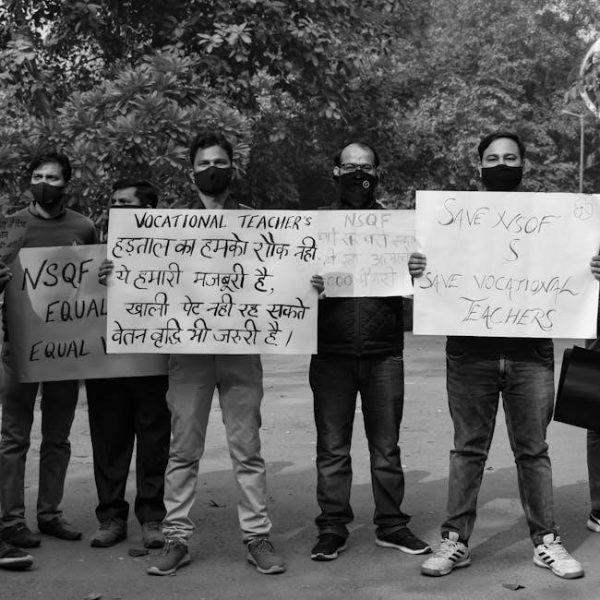 NSQF
EQUAL
EQUAL
VOCATIONAL TEACHER'S
हड़ताल का हमको शौक नही
ये हमारी मजबूरी है,
खाली पेट नही रह सकते
वेतन वृद्धि भी जरुरी है।
NSQF
SAVE NSQF
&
SAVE VOCATIONAL
TEACHERS